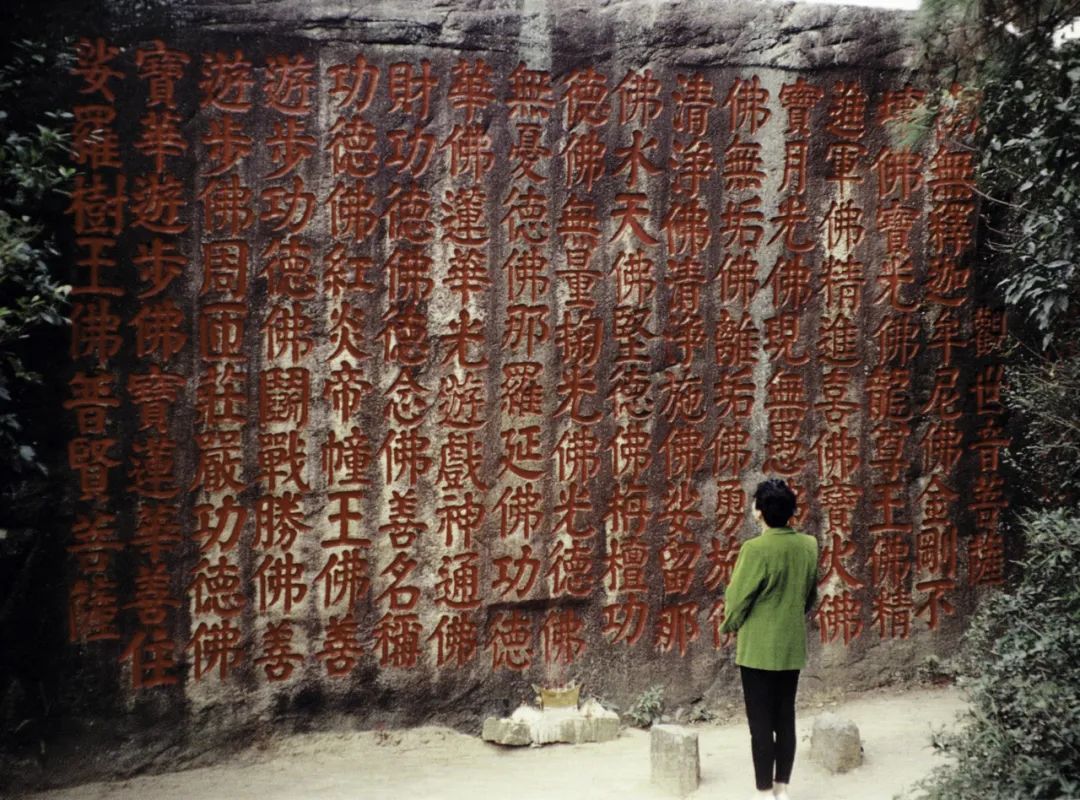 觀世音菩薩
南無釋迦牟尼佛金剛不
壞佛寶光佛龍尊王佛精
進軍佛精進喜佛寶火佛
寶月光佛現無愚
佛無垢佛離垢佛勇施佛
清淨佛清淨施佛娑留那
佛水天佛堅德佛栴檀功
德佛無量掬光佛光德佛
無憂德佛那羅延佛功德
華佛蓮華光遊戲神通佛
財功德佛德念佛善名稱
功德佛紅炎帝幢王佛善
遊步功德佛鬪戰勝佛善
遊步佛周匝莊嚴功德佛
寶華遊步佛寶蓮華善住
娑羅樹王佛普賢菩薩